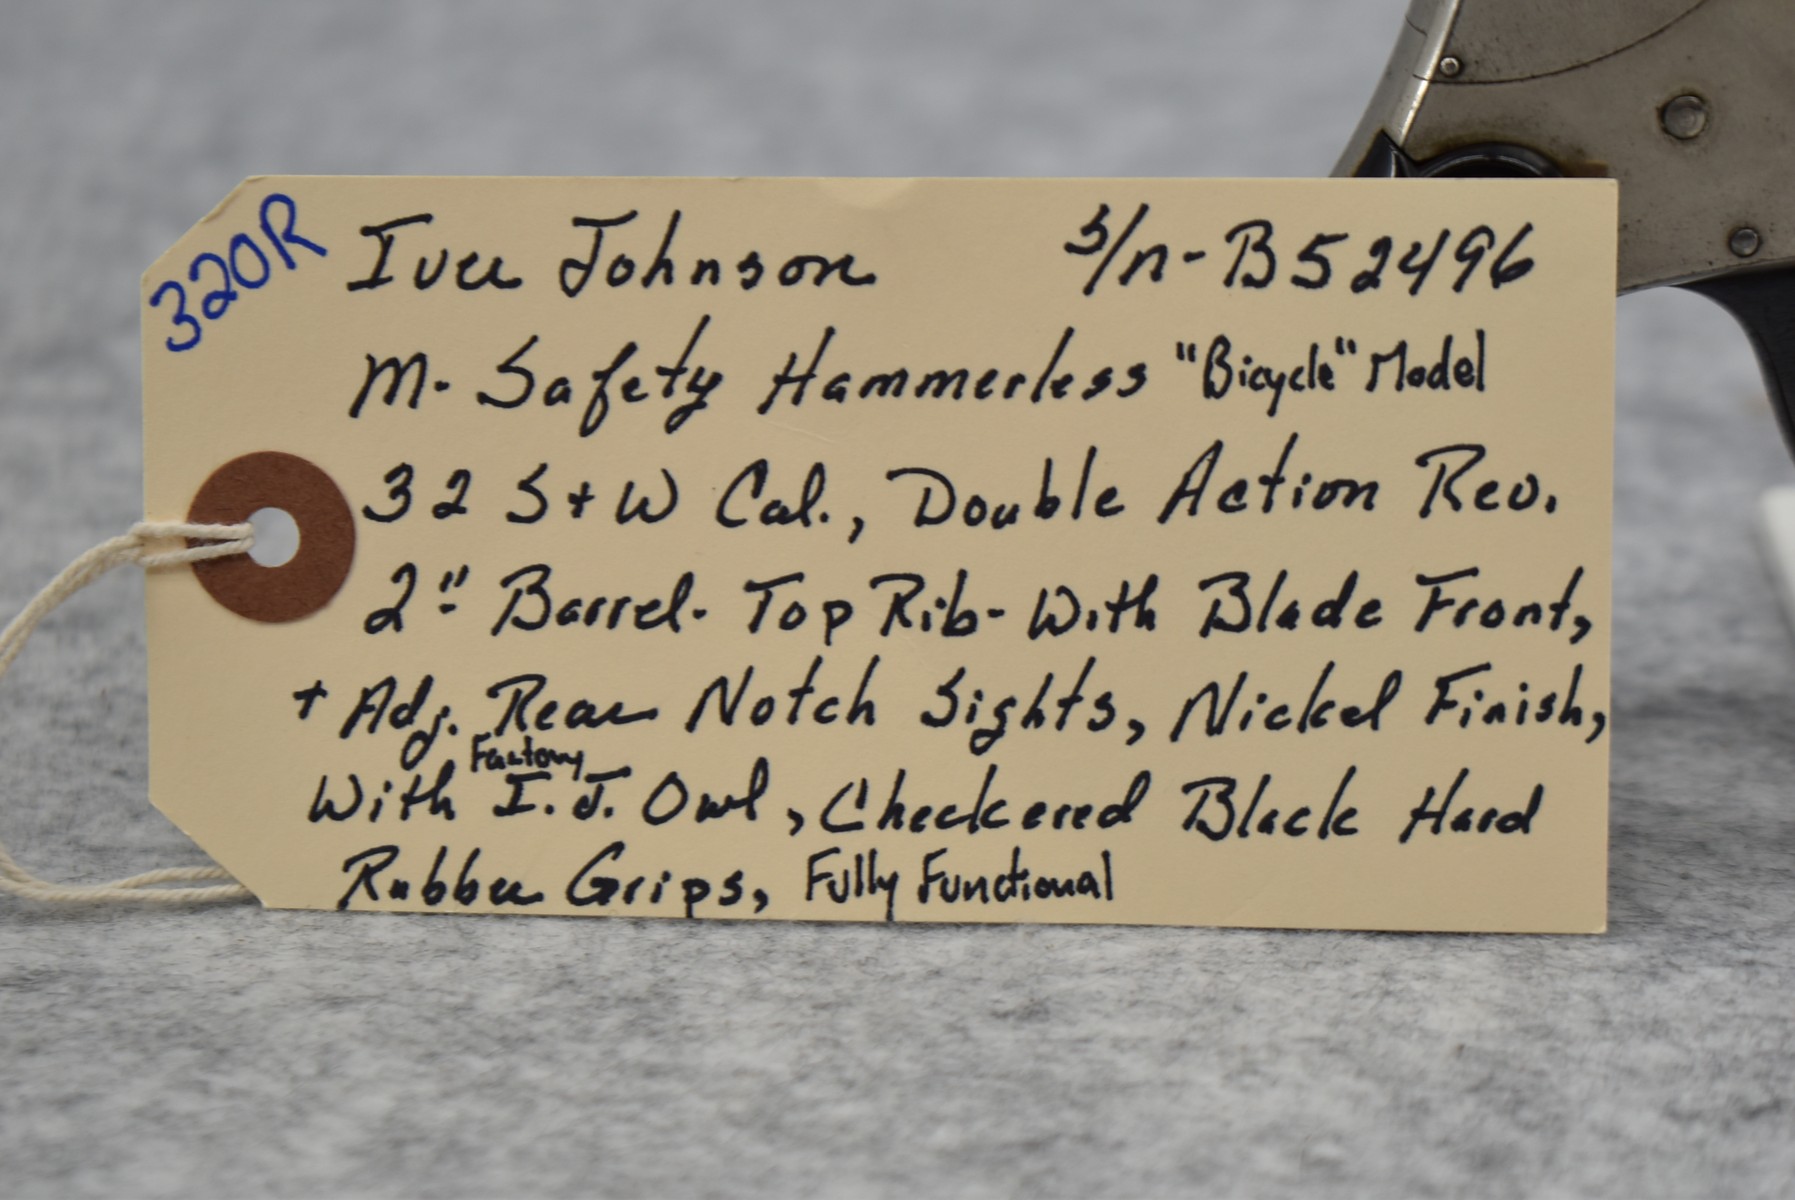 320R
Iver Johnson s/n - B52496
M. Safety Hammerless "Bicycle" Model
32 S+W Cal., Double Action Rev.
2" Barrel - Top Rib - With Blade Front,
+ Adj. Rear Notch Sights, Nickel Finish,
Factory
With I.J. Owl, Checkered Black Hard
Rubber Grips, Fully Functional